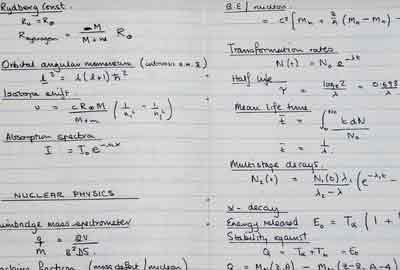 Rydberg Const.
R∞ = R∞
R hydrogen = M / M + m R∞
Orbital angular momentum
l² = l(l+1) ħ²
Isotope shift
υ = c R∞ M / M + m ( 1/n² - 1/n² )
Absorption spectra
I = I₀ e^-nx
NUCLEAR PHYSICS
mass spectrometer
q / m = 2V / B² DS
fraction (mass defect / nucleon)
B.E / nucleon
= c² [ Mn + Z/A (MH - Mn) -
Transformation rates
N(t) = N₀ e^-λt
Half life
τ = log e 2 / λ = 0.693 / λ
Mean life time
t̄ = ∫ t dN / N₀
t̄ = 1 / λ
Multistage decays
N₂(t) = N₁(0) λ₁ / λ₂ - λ₁ ( e^-λ₁t -
α - decay
Energy released E₀ = Tα ( 1 +
Stability against
Q = Tα + Tb = E₀
Q = M (Z, A) - M (Z-2, A-4)